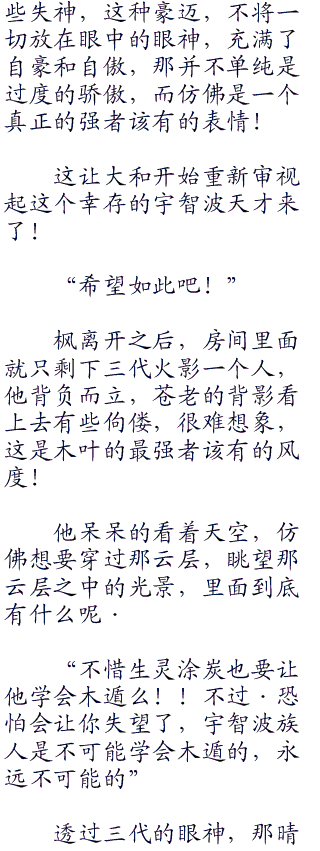 些失神，这种豪迈，不将一
切放在眼中的眼神，充满了
自豪和自傲，那并不单纯是
过度的骄傲，而仿佛是一个
真正的强者该有的表情！
这让大和开始重新审视
起这个幸存的宇智波天才来
了！
“希望如此吧！”
枫离开之后，房间里面
就只剩下三代火影一个人，
他背负而立，苍老的背影看
上去有些佝偻，很难想象，
这是木叶的最强者该有的风
度！
他呆呆的看着天空，仿
佛想要穿过那云层，眺望那
云层之中的光景，里面到底
有什么呢·
“不惜生灵涂炭也要让
他学会木遁么！！不过·恐
怕会让你失望了，宇智波族
人是不可能学会木遁的，永
远不可能的”
透过三代的眼神，那晴